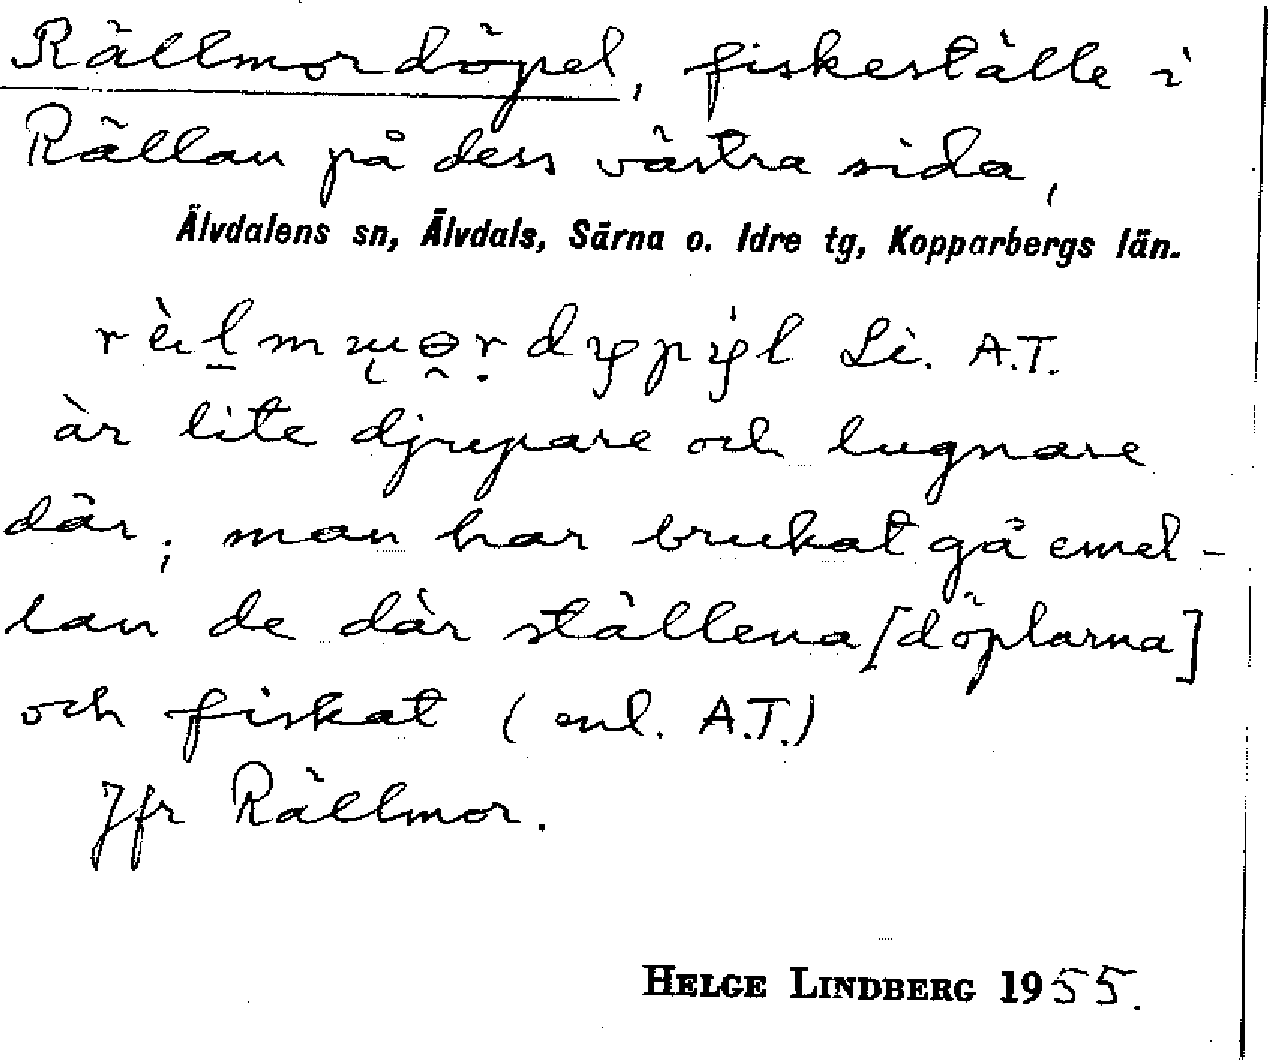 Rällmordöpel, fiskeställe i
Rällan på dess västra sida,
Älvdalens sn, Älvdals, Särna o. Idre tg, Kopparbergs län.
Li. A.T.
är lite djupare och lugnare
där; man har brukat gå emel-
lan de där ställena [döplarna]
och fiskat (enl. A.T.)
Jfr Rällmor.
HELGE LINDBERG 1955.